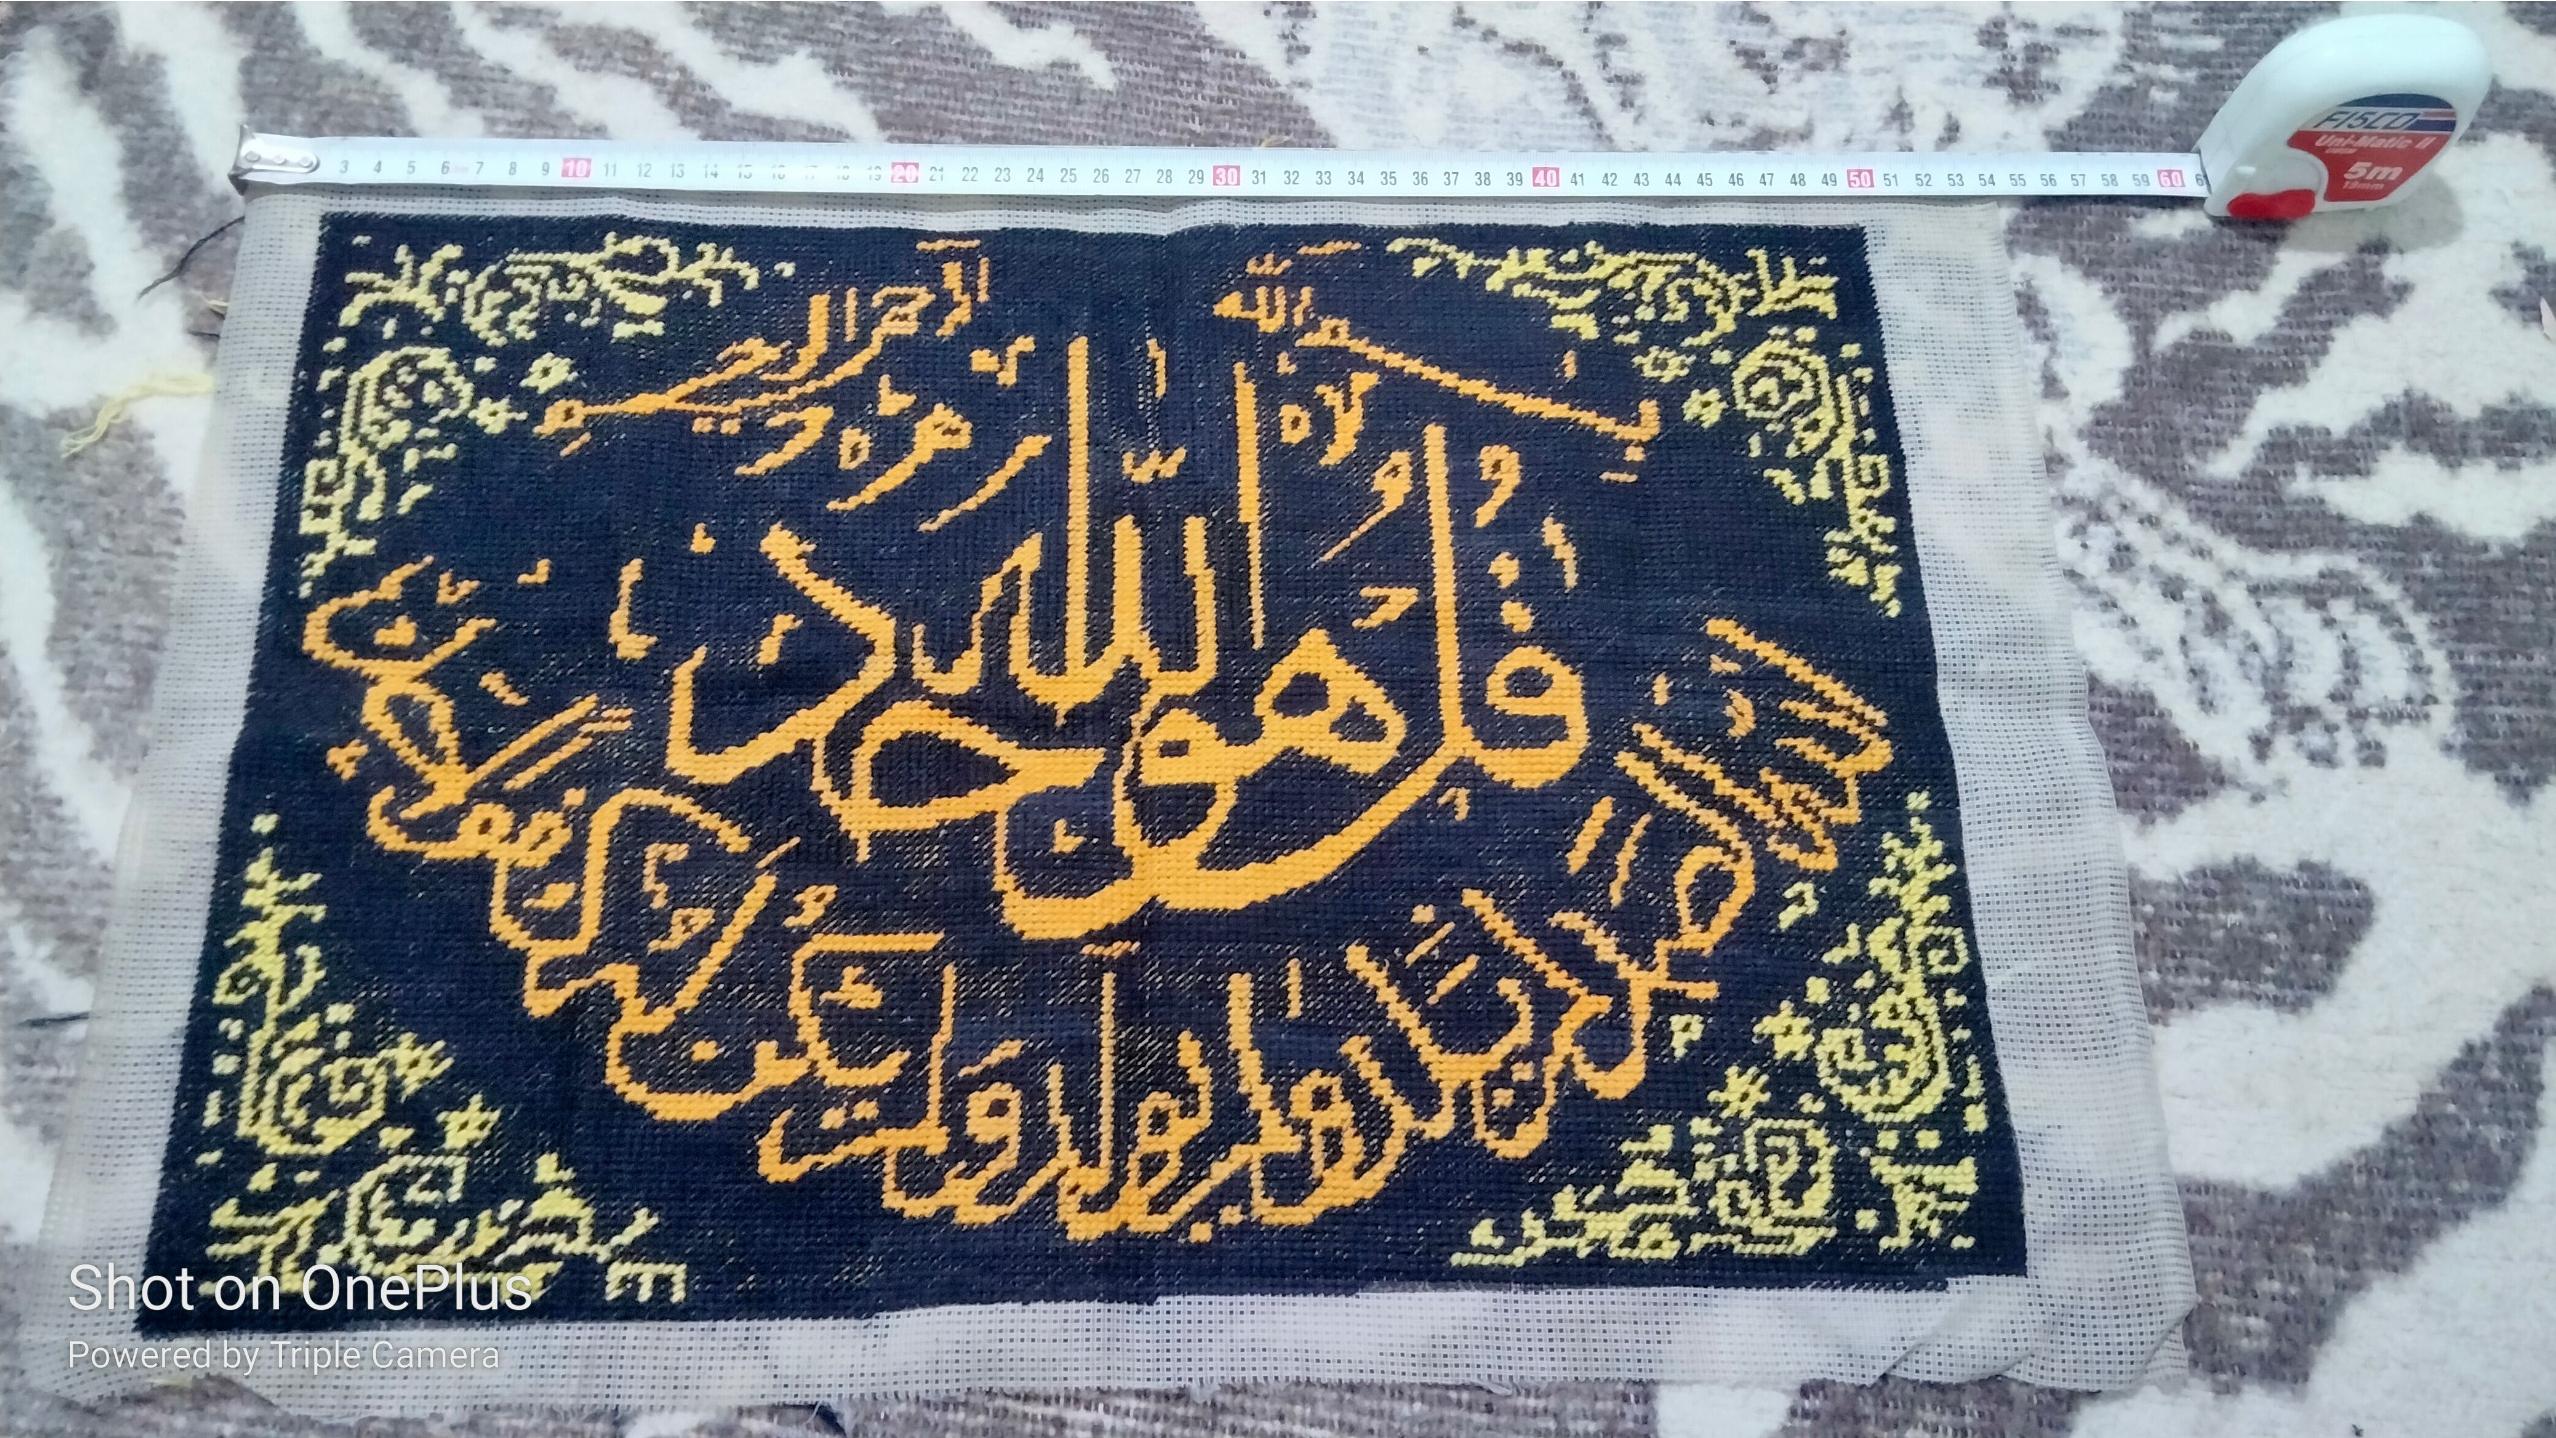 3 4 5 6 7 8 9 10 11 12 13 14 15 16 17 18 19 20 21 22 23 24 25 26 27 28 29 30 31 32 33 34 35 36 37 38 39 40 41 42 43 44 45 46 47 48 49 50 51 52 53 54 55 56 57 58 59 60
FISCO
Uni-Matic II
5m
13mm
بسم الله الرحمن الرحيم
قل هو الله احد
الله الصمد لم يلد ولم يولد ولم يكن له كفوا احد
Shot on OnePlus
Powered by Triple Camera